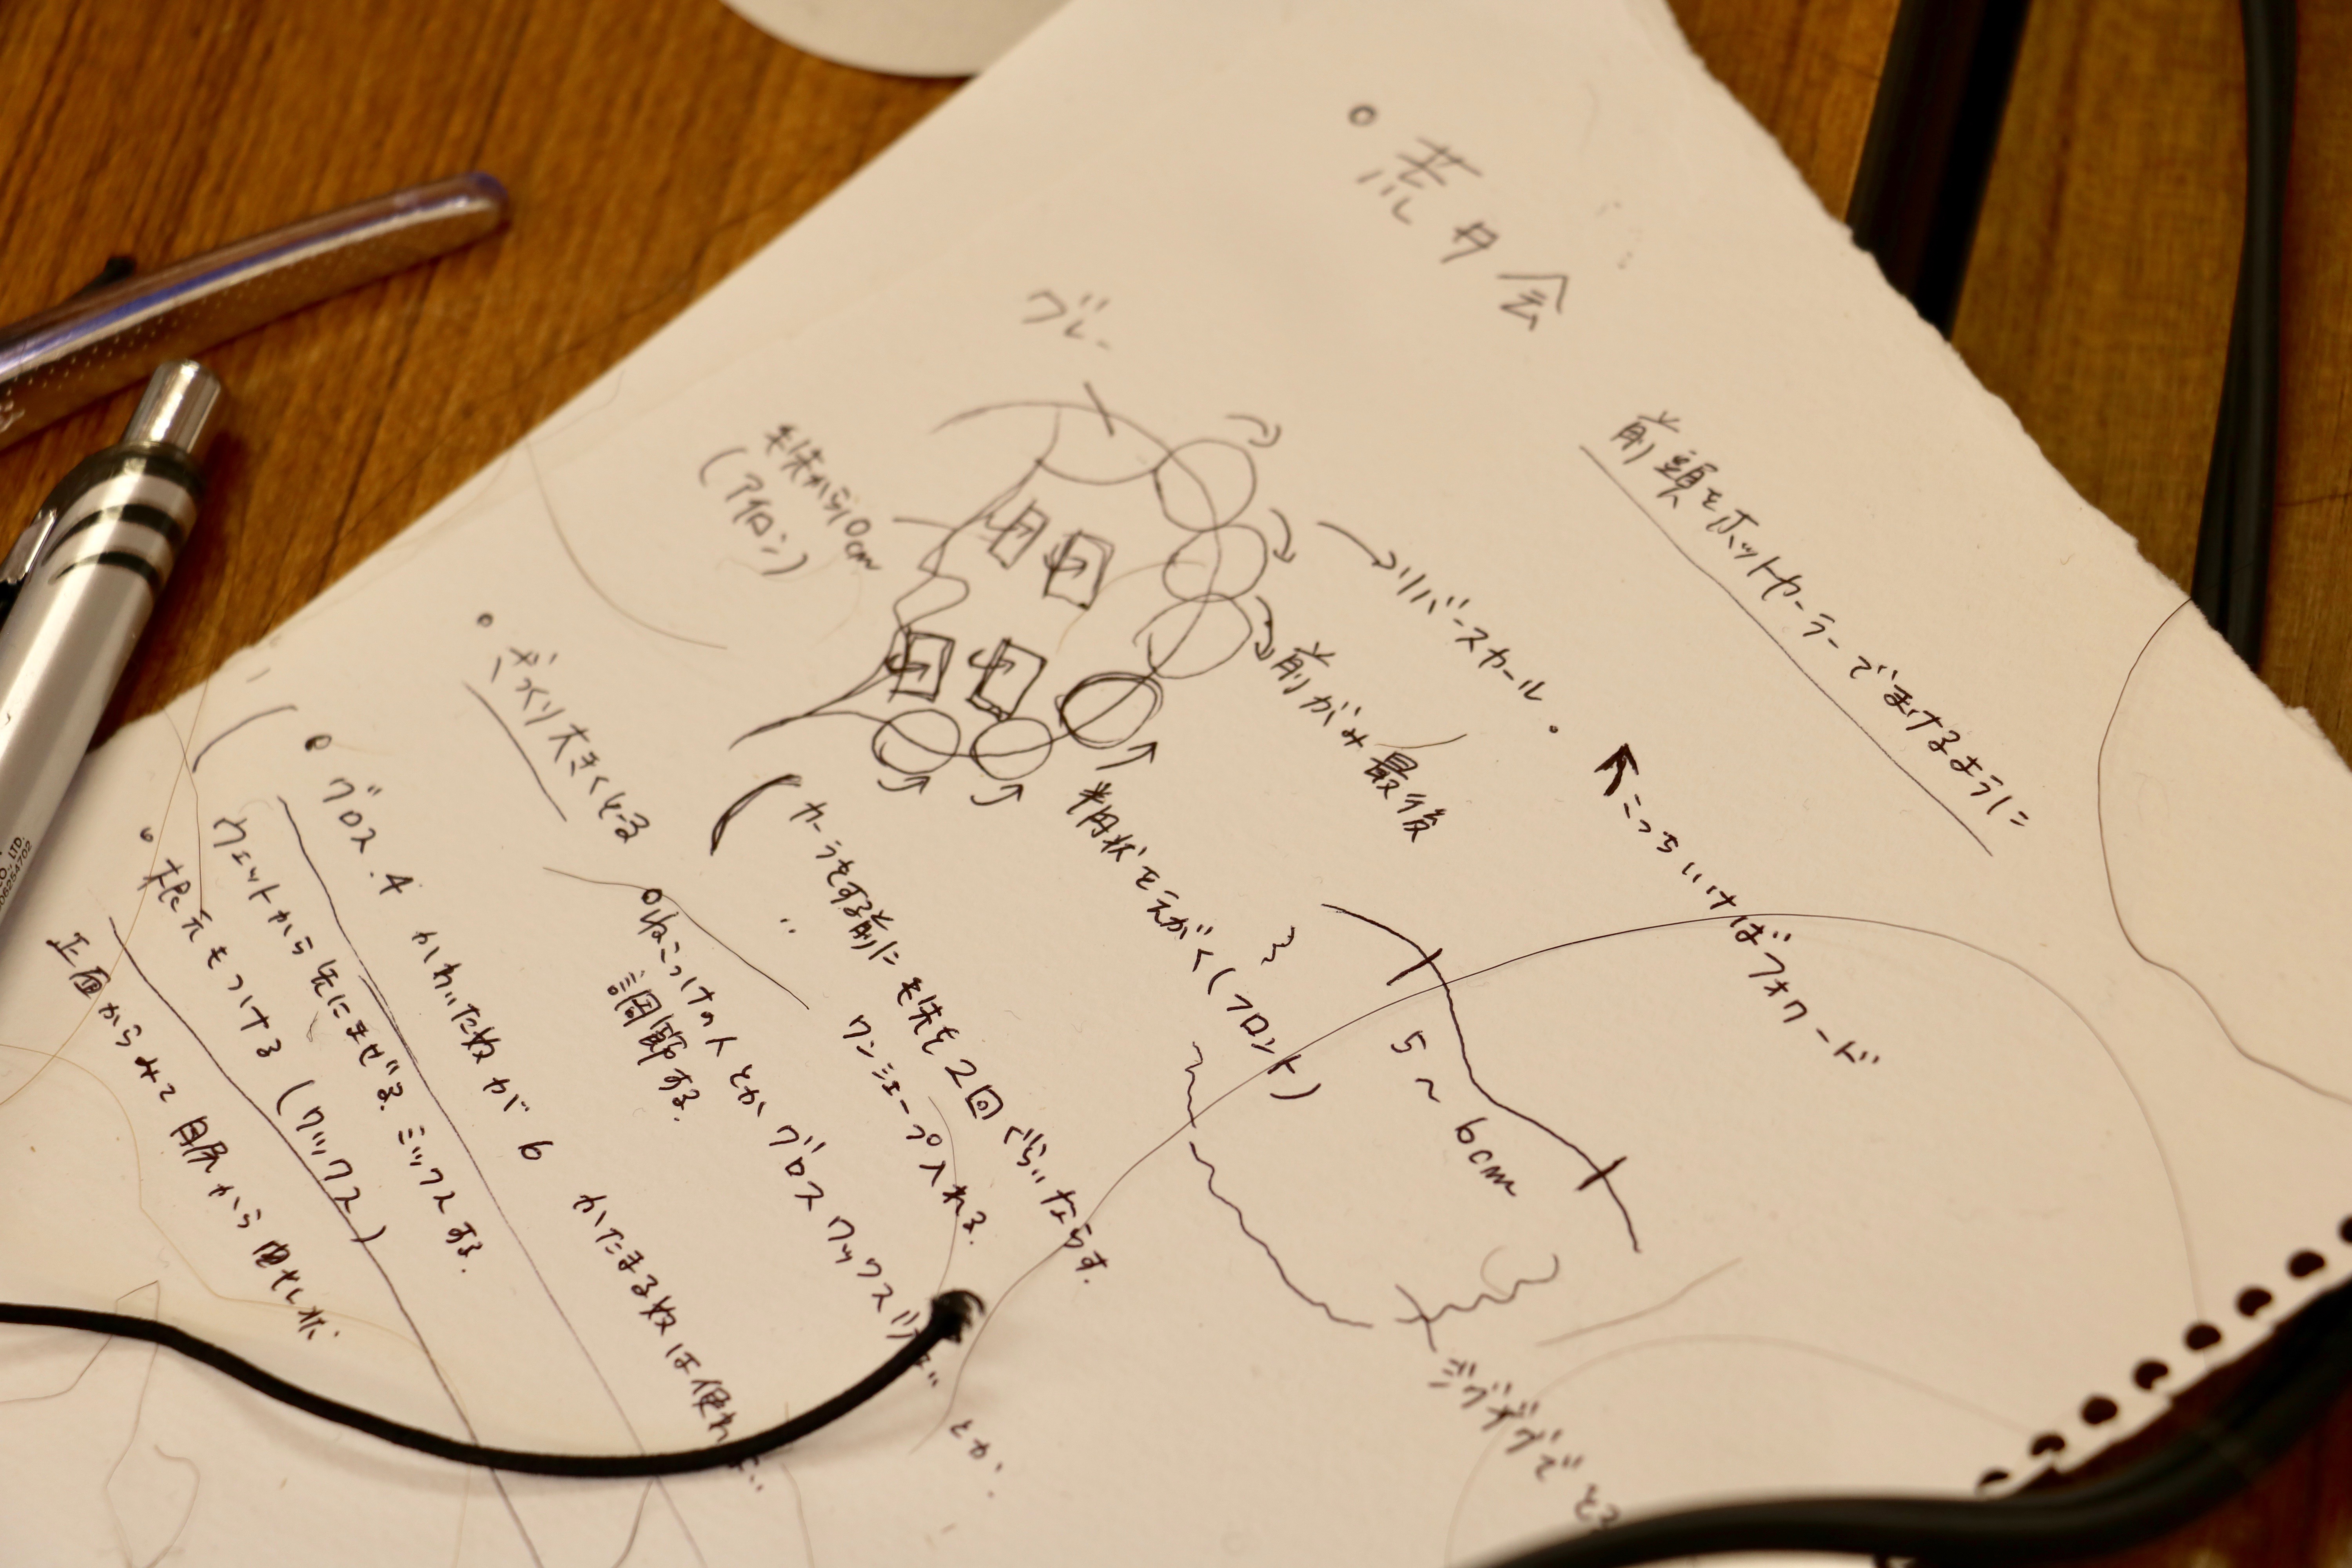 会
グレー
前頭をホットカーラーでまけるように
毛先から10cm
(アイロン)
リバースカール。
前がみ最後
こっちいけばフォワード
半円状をえがく(フロント)
5~6cm
ジグザグでとる
ざっくり大きくとる
カーラをする前に毛先を2回ぐらいならす.
ワンシェープ入れる.
ねこっけの人とかグロスワックス
とか.
調節する.
グロス.4 かわいためが6 かたまる は使
ウェットから先にまぜる. ミックスする.
根元もつける (ワックス)
正面からみて目尻から
CO., LTD.